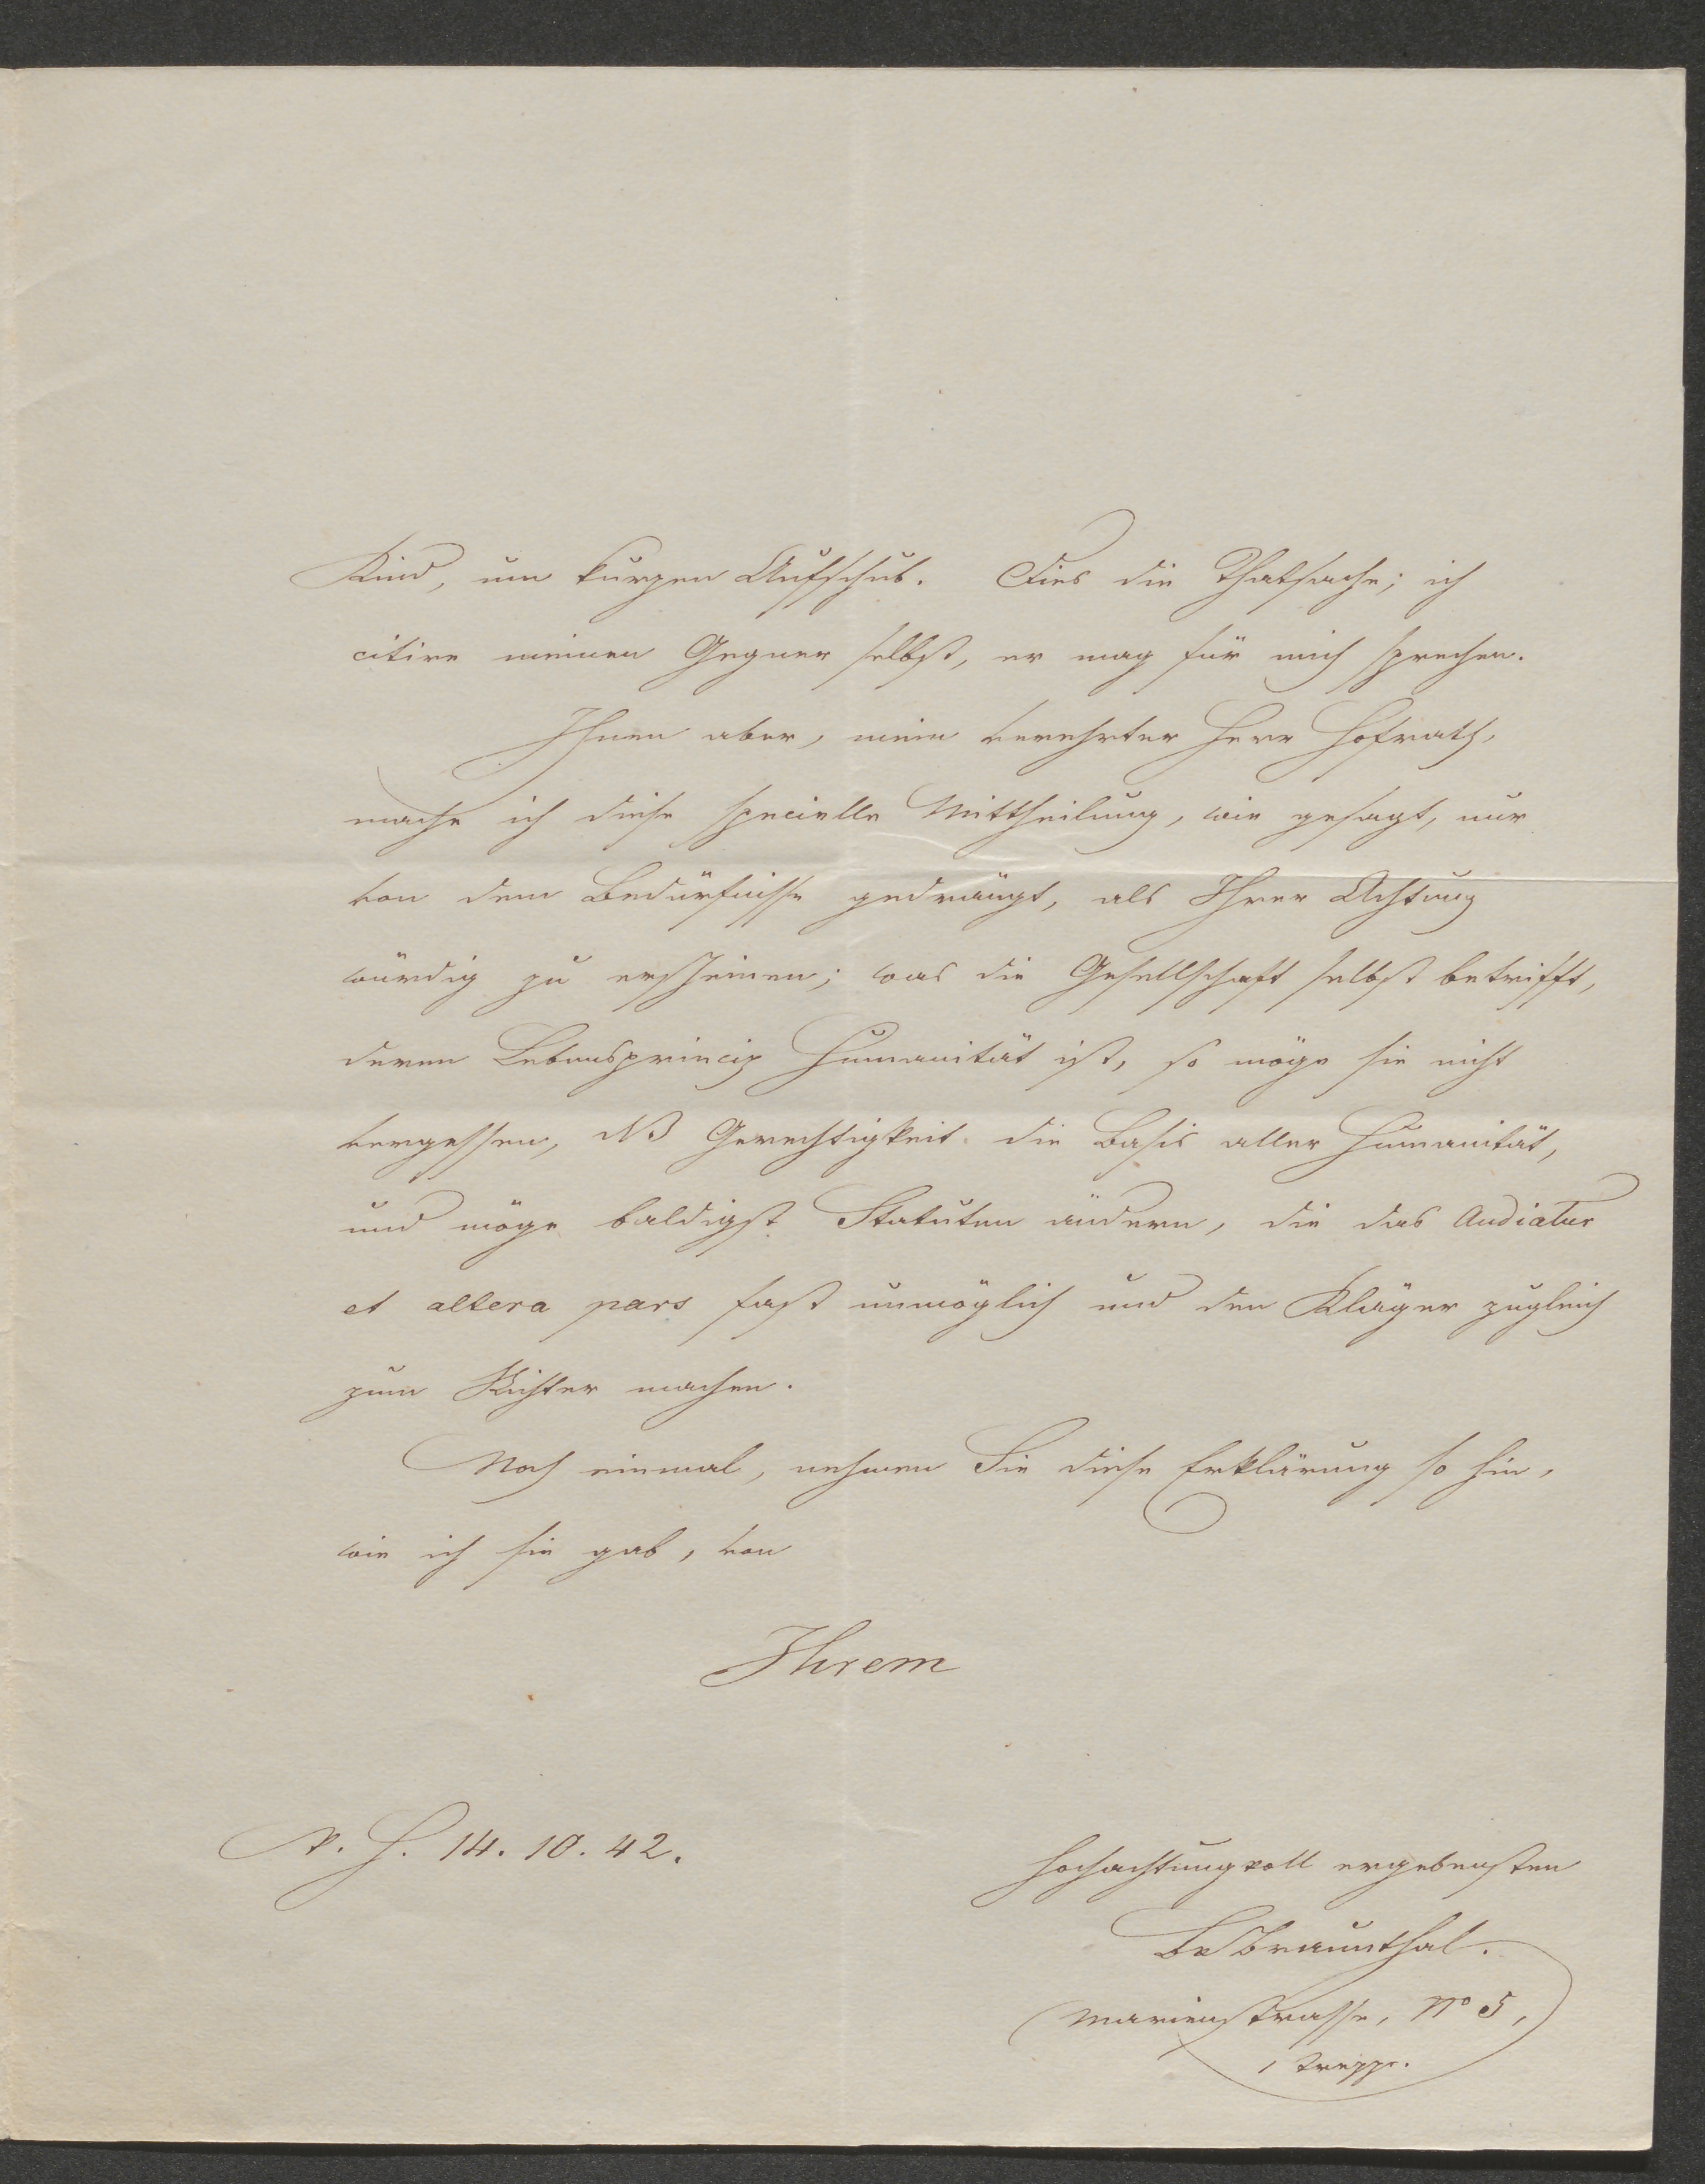 Kind, um kurzen Aufschub. Dies die Thatsache; ich
citire meinen Gegner selbst, er mag für mich sprechen.
Ihnen aber, mein verehrter Herr Hofrath,
mache ich diese specielle Mittheilung, wie gesagt, nur
von dem Bedürfnisse gedrängt, als Ihrer Achtung
würdig zu erscheinen; was die Gesellschaft selbst betrifft,
deren Lebensprincip Humanität ist, so möge sie nicht
vergessen, daß Gerechtigkeit die Basis aller Humanität,
und möge baldigst Statuten ändern, die das Audiatur
et altera pars fast unmöglich und den Kläger zugleich
zum Richter machen.
Noch einmal, nehmen Sie diese Erklärung so hin,
wie ich sie gab, von
Ihrem
v. H. 14. 10. 42.
hochachtungvoll ergebensten
Braunthal.
Marienstrasse, No 5,
1 Treppe.